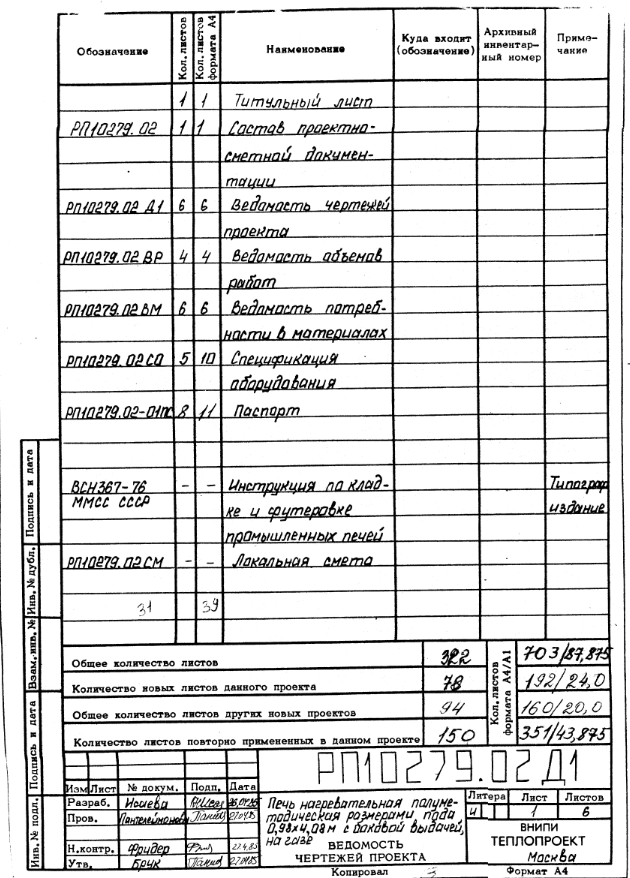 Обозначение Кол. листов Кол. листов формата А4 Наименование Куда входит (обозначение) Архивный инвентар- ный номер Приме- чание
1 1 Титульный лист
РП10279.02 1 1 Состав проектно-
сметной докумен-
тации
РП10279.02 Д1 6 6 Ведомость чертежей
проекта
РП10279.02 ВР 4 4 Ведомость объемов
работ
РП10279.02 ВМ 6 6 Ведомость потреб-
ности в материалах
РП10279.02 СО 5 10 Спецификация
оборудования
РП10279.02-01ПС 8 11 Паспорт
ВСН367-76 - - Инструкция по клад- Типограф
ММСС СССР ке и футеровке издание
промышленных печей
РП10279.02 СМ - - Локальная смета
31 39
Общее количество листов 322 Кол. листов формата А4/А1 703/87,875
Количество новых листов данного проекта 78 192/24,0
Общее количество листов других новых проектов 94 160/20,0
Количество листов повторно примененных в данном проекте 150 351/43,875
РП10279.02Д1
Изм Лист № докум. Подп. Дата
Разраб. Исаева
Пров. Пантелеймонов 27.04.85
Н.контр. Фридер 27.4.85
Утв. Брик 27.04.85
Печь нагревательная полуме-
тодическая размерами пода
0,98х4,08м с боковой выдачей,
на газе
ВЕДОМОСТЬ
ЧЕРТЕЖЕЙ ПРОЕКТА
Литера Лист Листов
И 1 6
ВНИПИ
ТЕПЛОПРОЕКТ
Москва
Копировал 3 Формат А4
Подпись и дата
Инв. № дубл.
Взам. инв. №
Подпись и дата
Инв. № подл.